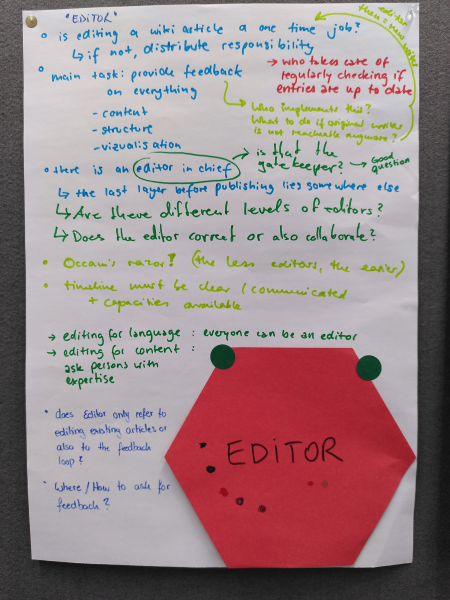 "EDITOR"
is editing a wiki article a one time job?
↳ if not, distribute responsibility
→ who takes care of
regularly checking if
entries are up to date
main task: provide feedback
on everything
- content
- structure
- vizualisation
Who implements this?
What to do if original writer
is not reachable anymore?
there is an editor in chief
→ is that the
gatekeeper?
→ Good
question
↳ the last layer before publishing lies somewhere else
↳ Are there different levels of editors?
↳ Does the editor correct or also collaborate?
Occam's razor! (the less editors, the easier)
timeline must be clear / communicated
+ capacities available
→ editing for language : everyone can be an editor
→ editing for content :
ask persons with
expertise
does Editor only refer to
editing existing articles or
also to the feedback
loop?
Where / How to ask for
feedback?
EDITOR